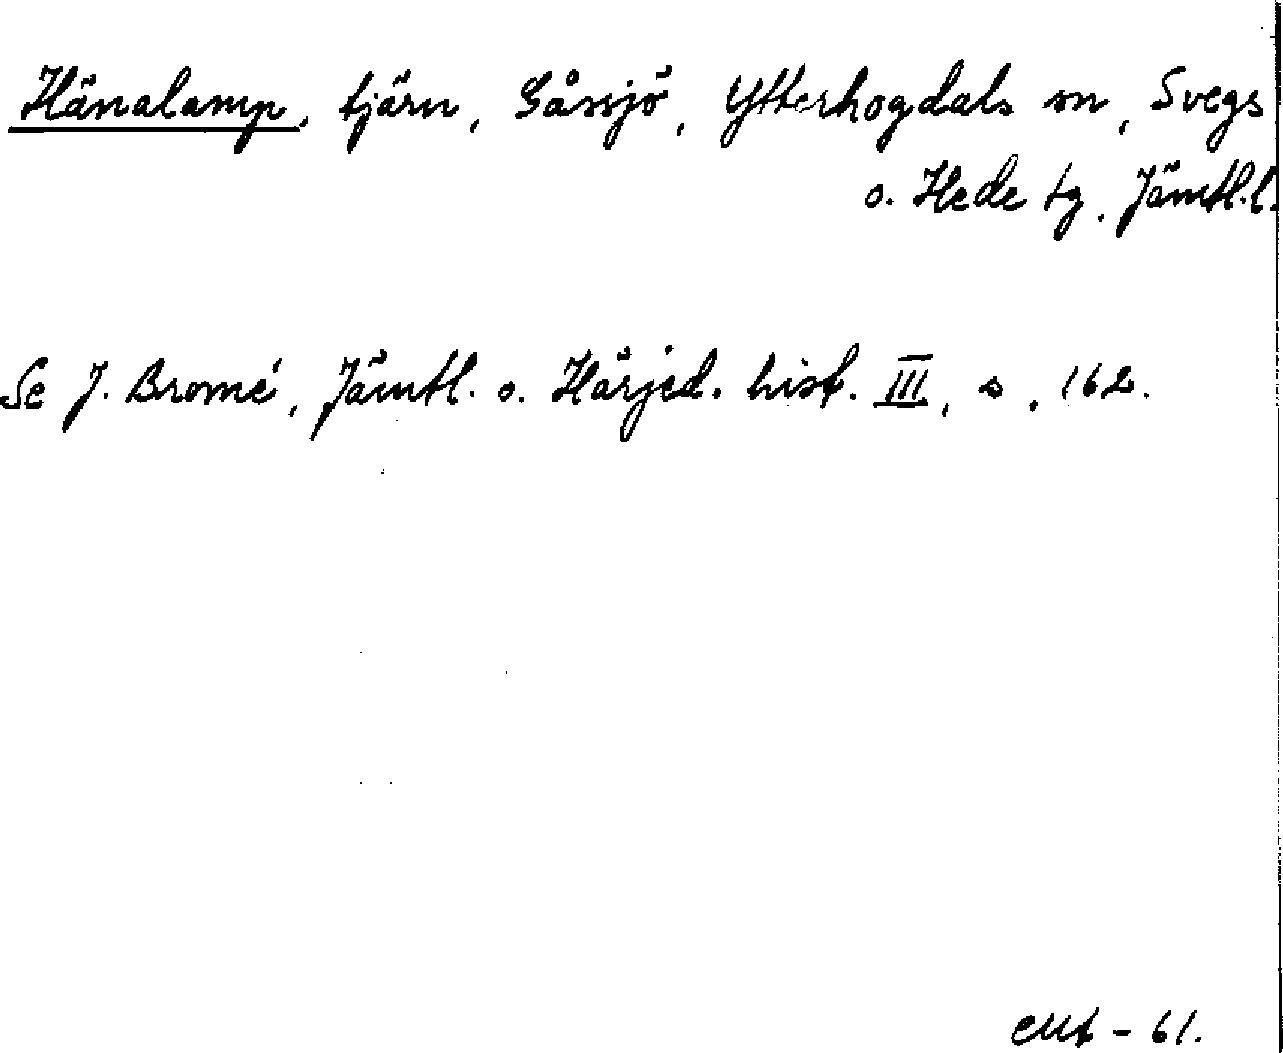 Hänalamp, tjärn, Gåssjö, Ytterhogdals sn, Svegs
o. Hede tg, Jämtl.l.
Se J. Bromé, Jämtl. o. Härjed. hist. III, s. 162.
- 61.